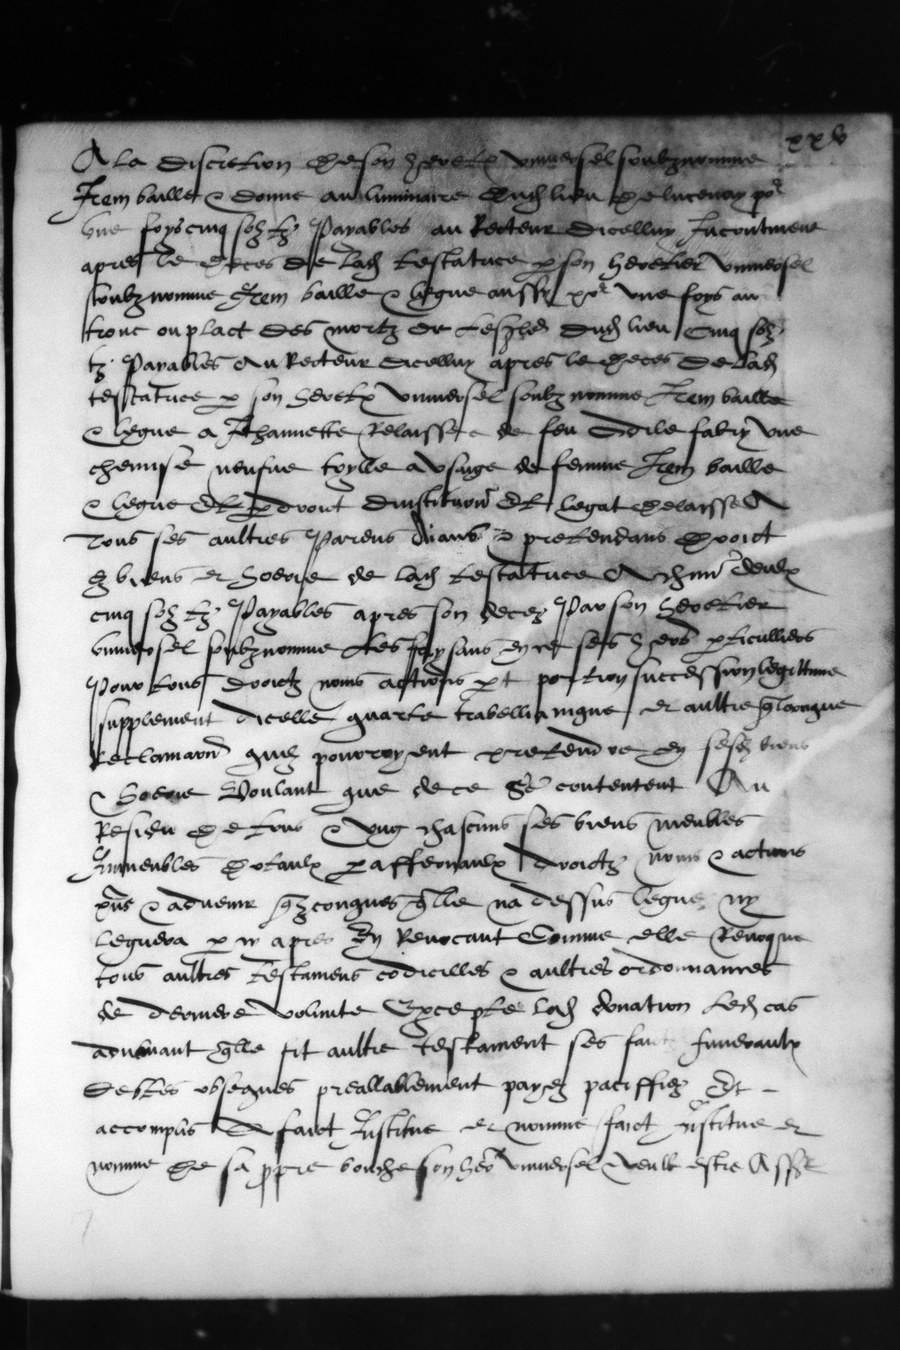 xxv
A la discretion de son heretier universel soubznomme
Item baille & donne au luminaire dud lieu de lucenay por
une foys cinq solz tz payables au Recteur dicelluy Incontinent
apres le deces de lad testatrice p son heretier universel
soubz nomme Item baille & legue aussy por une foys au
tronc ou plact des mortz de lesglse dud lieu cinq solz
tz payables au Recteur dicelluy apres le deces de lad
testatrice p son heretier universel soubz nomme Item baille
& legue a Jehannette Relaissee de feu Odile fabry une
chemise neufve toylle a usaige de femme Item baille
& legue et p droict dinstitution et legat delaisse A
Tous ses aultres Parens & pretendans droict
es biens et hoerie de lad testatrice A chun deulx
cinq solz tz Payables apres son decez Par son heretier
universel soubznomme Les faysans en ce ses hers pticulliers
Pour tous droictz noms actions pt portion succession legittime
supplement dicelle quarte trabellianique et aultre qlconque
Reclamaon quilz pourroyent pretendre en sesd biens
& hoerie Voulant que de ce se contentent Au
Residu de tous & ung chascuns ses biens meubles
Immeubles dotaulx paraffernaulx droictz noms & actions
pns & advenir qlzconques qlle na dessus legue ny
leguera p cy apres En Revocant Comme elle Revoque
tous aultres testamens codicilles & aultres ordonnances
de derniere volunte Excepte lad donation led cas
advenant qlle fit aultre testament ses fraiz funeraulx
debtes obseques preallablement payez paciffiez Et
accomplis A faict Institue et nomme faict institue et
nomme de sa ppre bouche son her universel & veult estre Assr